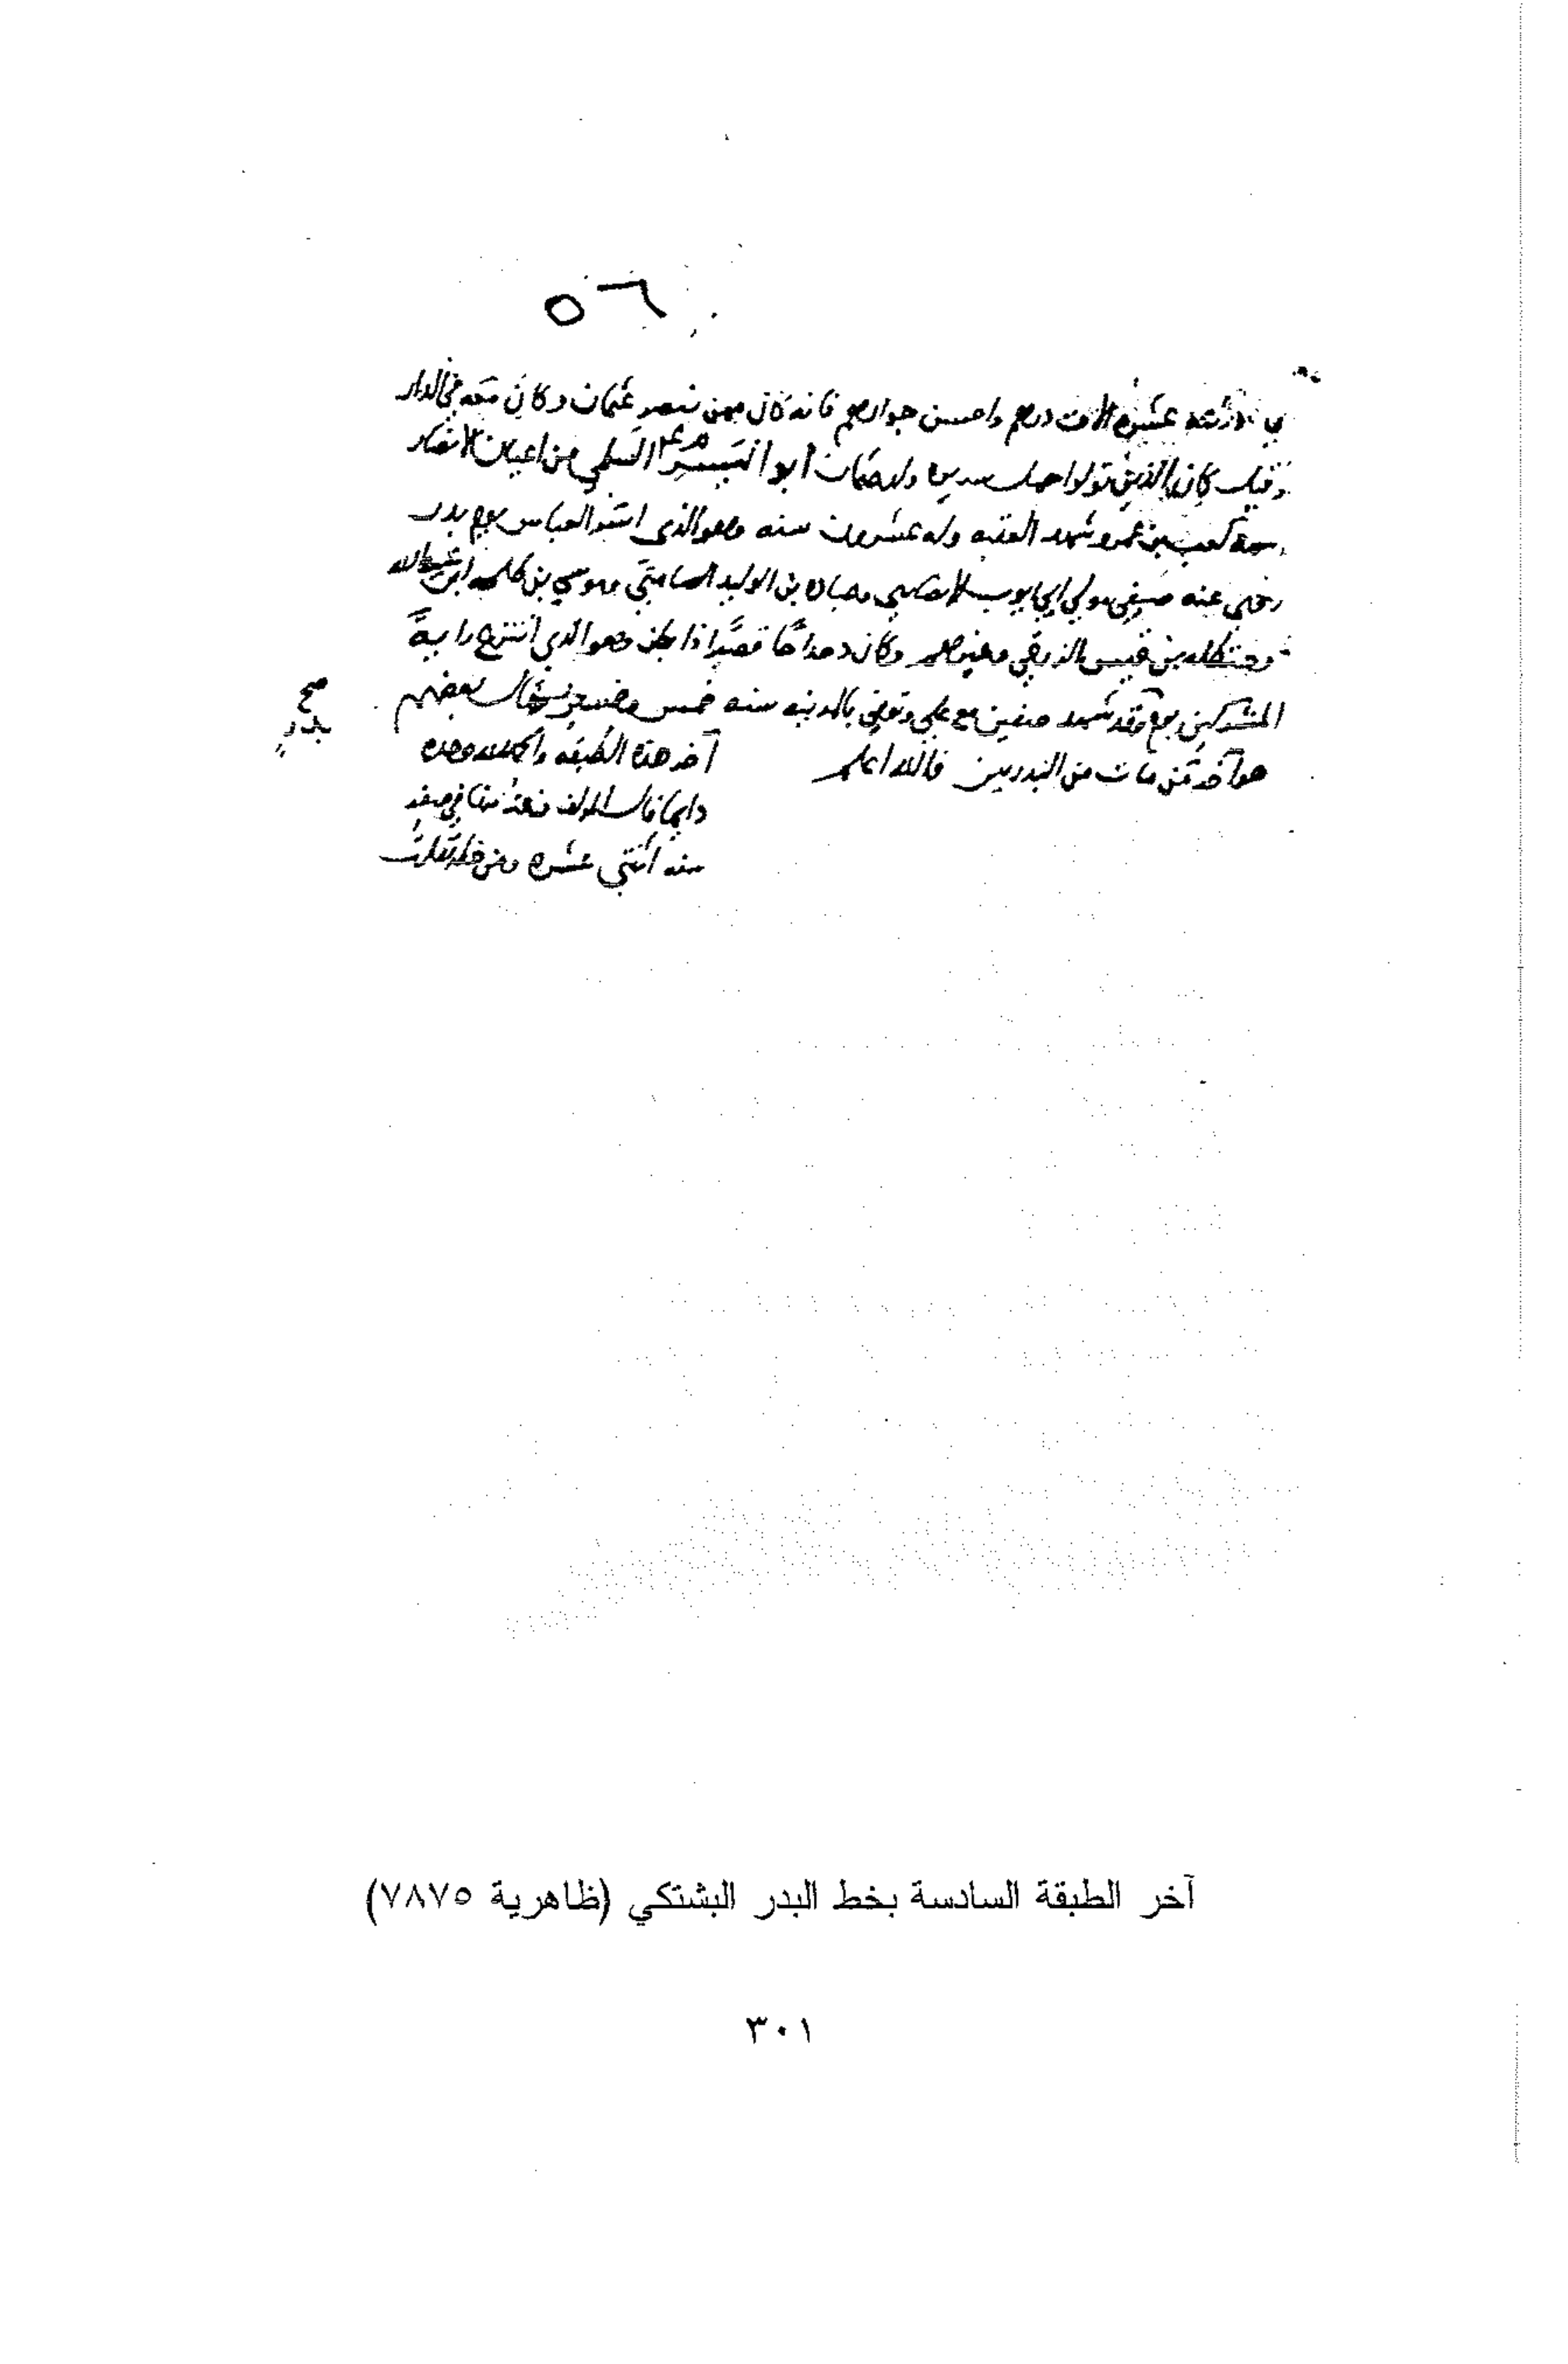 ٥٦
عشرة الاف درهم واحسن جوارهم فانه كان ممن نصر عثمان وكان معه في الدار
وقيل كان الذين تولوا ابو اليسر م عه السلمي من اعيان الانصار
كعب بن عمرو شهد العقبه وله عشرون سنه وهو الذي اسر العباس يوم بدر
روى عنه صيفي مولى ابي ايوب الانصاري وعباده بن الوليد الصامتي وموسى بن طلحه ابن عبيد الله
وحنظله بن قيس الزرقي وغيرهم وكان دحداحًا قصيرًا ذا بطن وهو الذي انتزع راية
المشركين يوم وقد شهد صفين مع علي وتوفي بالمدينه سنه خمس وخمسين وقال بعضهم
صح
بدر
هو آخر من مات من البدريين فالله اعلم
آخر هذه الطبقه والحمد لله وحده
دايما قال المولف فرغت منها في صفر
سنه اثنتي عشره
آخر الطبقة السادسة بخط البدر البشتكي (ظاهرية ٧٨٧٥)
٣٠١